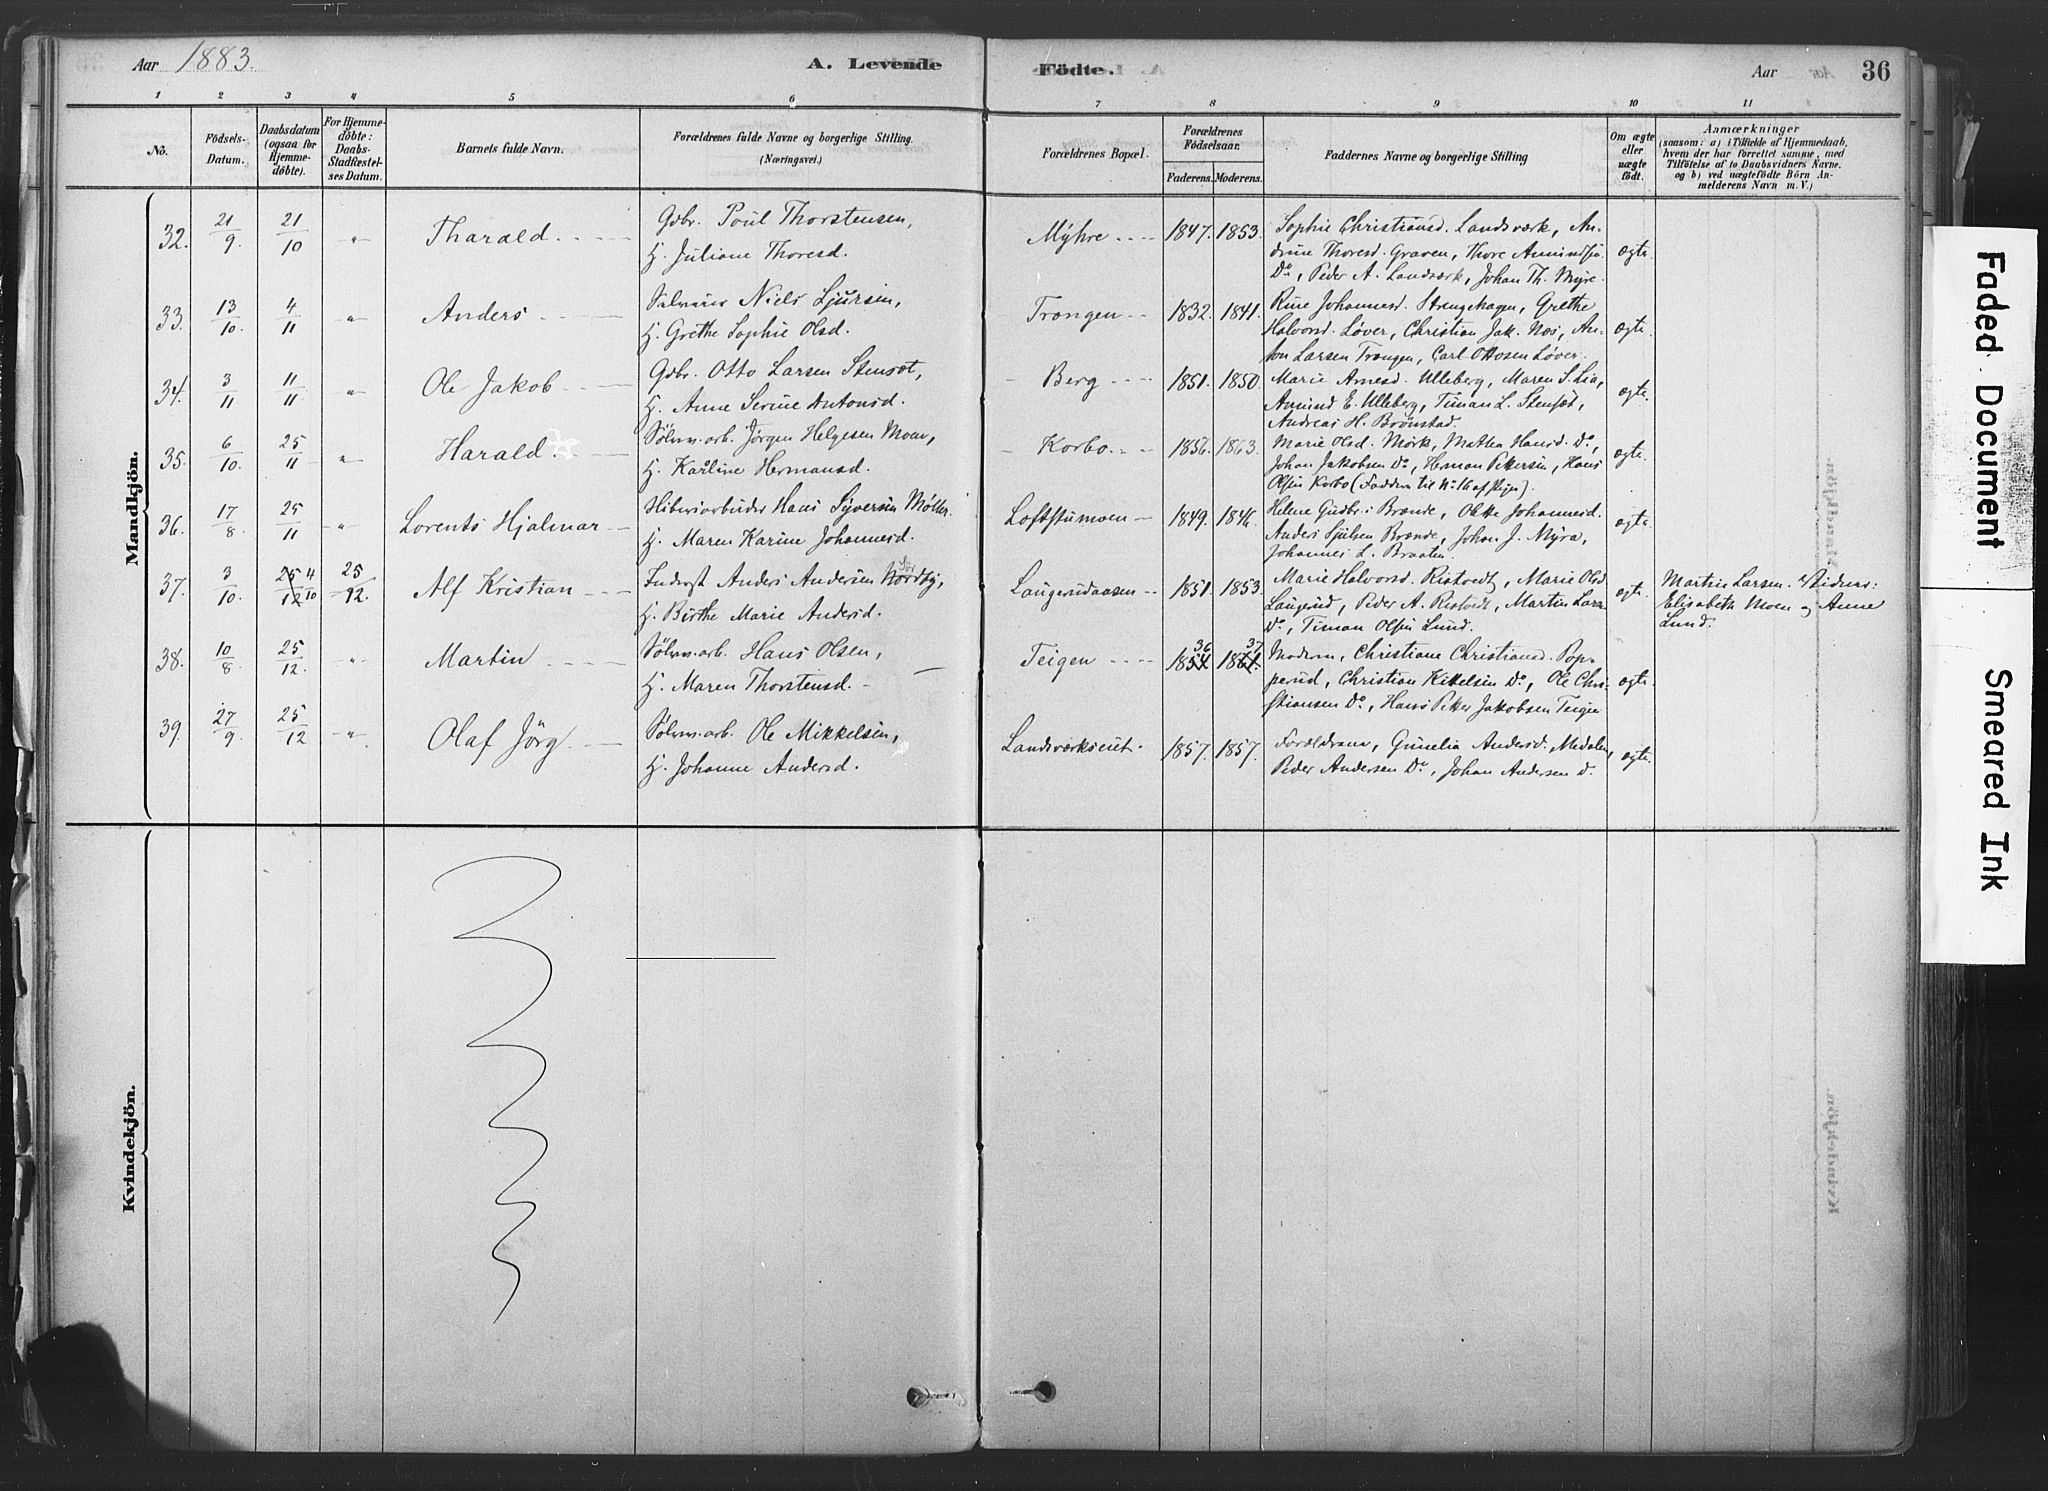 Aar 1883.
A. Levende Födte.
Aar
36
1 2 3 4 5 6 7 8 9 10 11
No.
Födsels-
Datum.
Daabsdatum
(ogsaa for
Hjemme-
döbte).
For Hjemme-
döbte:
Daabs-
Stadfæstel-
ses Datum.
Barnets fulde Navn.
Forældrenes fulde Navne og borgerlige Stilling.
(Næringsvei.)
Forældrenes Bopæl.
Forældrenes
Födselsaar.
Faderens. Moderens.
Faddernes Navne og borgerlige Stilling
Om ægte
eller
uægte
födt.
Anmærkninger
(saasom: a) i Tilfælde af Hjemmedaab,
hvem der har forrettet samme, med
Tilföielse af to Daabsvidners Navne.
og b) ved uægtefödte Börn An-
melderens Navn m. V.)
Mandkjön.
32. 21/9 21/10 " Tharald
Gdbr. Poul Thorstensen,
H. Juliane Thoresd.
Myhre 1847. 1853.
Sophie Christiansd. Landsværk, An-
drine Thoresd. Graven, Thore Amundsen
Do, Peder A. Landsværk, Johan Th. Myre.
ægte.
33. 13/10 4/11 " Anders
Niels Ljursen,
H. Grethe Sophie Olsd.
Trangen 1832. 1841.
Rine Johannesd. Strengehagen, Grethe
Halvorsd. Løver, Christian Jak. Nos, An-
ton Larsen Trangen, Carl Ottosen Løver.
ægte.
34. 3/11 11/11 " Ole Jakob
Gdbr. Otto Larsen Stensøt,
H. Anne Serine Antonsd.
Berg 1851. 1850.
Marie Arnesd. Ulleberg, Maren S. Lia,
Amund E. Ulleberg, Timan L. Stensøt,
Andreas H. Brønstad.
ægte.
35. 6/10 25/11 " Harald.
Sølvv.arb. Jørgen Helgesen Moen,
H. Karline Hermansd.
Korbo 1856. 1863.
Marie Olsd. Mørk, Mathea Hansd. Do,
Johan Jakobsen Do, Herman Pettersen, Hans
Olsen Korbo (Faddern til No 16
ægte.
36. 17/8 25/11 " Lorents Hjalmar
Fiberiarbeider Hans Syversen Møller.
H. Maren Karine Johannesd.
Loftstumoen 1849. 1846.
Helene Gudbr. Brænde, Olette Johannesd.
Anders Ljulsen Brænde, Johan J. Myra,
Johannes L. Braaten.
ægte.
37. 3/10 25/12 4/10 25/12 Alf Kristian
Inderst Anders Andersen Nordby,
H. Birthe Marie Andersd.
Laugerudaasen 1851. 1853.
Marie Halvorsd. Ristvedt, Marie Olsd.
Laugerud, Peder A. Ristvedt, Martin Lars.
Do, Timan Olsen Lund.
ægte.
Martin Larsen. Vidner:
Elisabeth Moen og Anne
Lund.
38. 10/8 25/12 " Martin
Sølvv.arb. Hans Olsen,
H. Maren Thorstensd.
Teigen 1854 36 1861. 37
Moderen, Christiane Christiansd. Pop-
perud, Christian Kittelsen Do, Ole Chri-
stiansen Do, Hans Petter Jakobsen Teigen
ægte.
39. 27/9 25/12 " Olaf Jörg
Sølvv.arb. Ole Mikkelsen,
H. Johanne Andersd.
Landsværkseiet. 1857. 1857.
Forældrene, Gunelia Andersd. Medalen,
Peder Andersen Do, Johan Andersen Do.
ægte.
Kvindekjön.
Faded Document
Smeared Ink